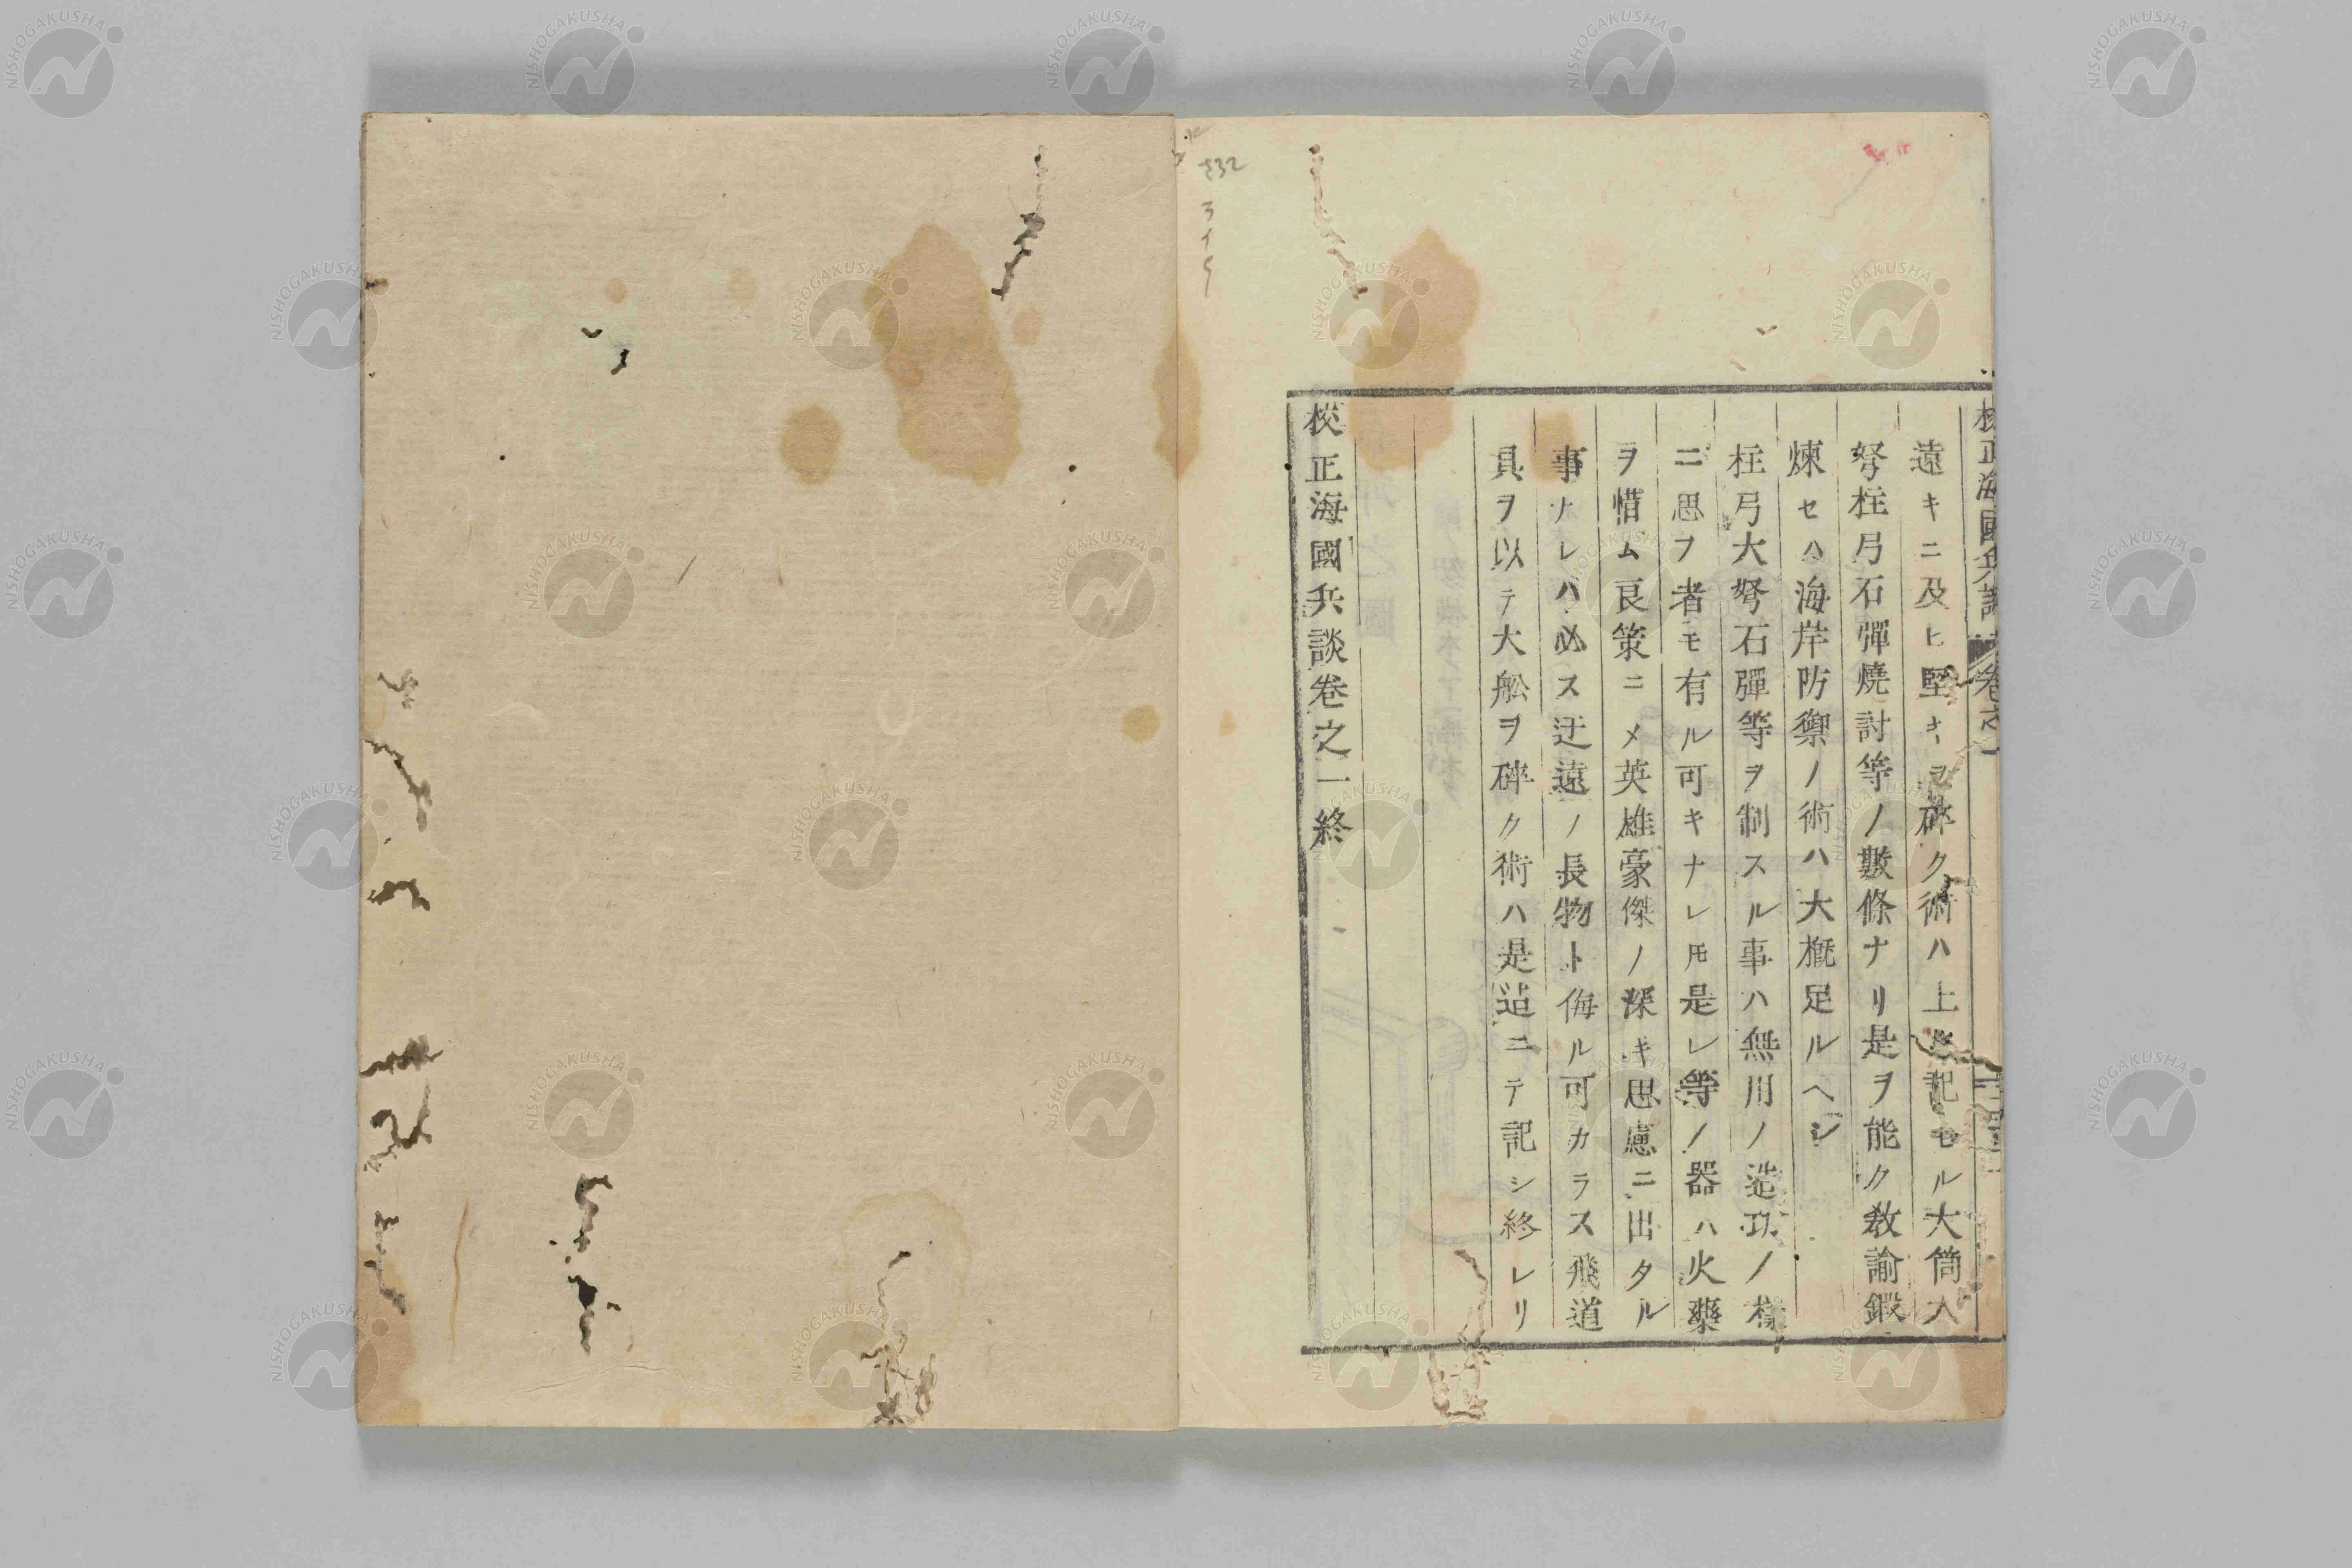 校正海國兵談 卷之一
遠キニ及ヒ堅キヲ碎ク術ハ上ニ記セル大筒大
弩柱弓石彈燒討等ノ數條ナリ是ヲ能ク敎諭鍜
煉セハ海岸防禦ノ術ハ大槪足ルヘシ
柱弓大弩石彈等ヲ制スル事ハ無用ノ造功ノ樣
ニ思フ者モ有ル可キナレ𪜈是レ等ノ器ハ火藥
ヲ惜ム良策ニメ英雄豪傑ノ深キ思慮ニ出タル
事ナレハ必ス迂遠ノ長物ト侮ル可カラス飛道
具ヲ以テ大舩ヲ碎ク術ハ是迠ニテ記シ終レリ
校正海國兵談卷之一終
NISHOGAKUSHA